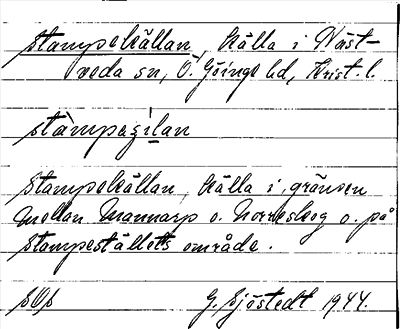 Stampekällan, källa i Näst-
veda sn, Ö. Göinge hd, Krist. l.
stàmpeҫílan
Stampekällan, källa i gränsen
mellan Mannarp o. Norreskog o. på
Stampeställets område.
G. Sjöstedt 1944.